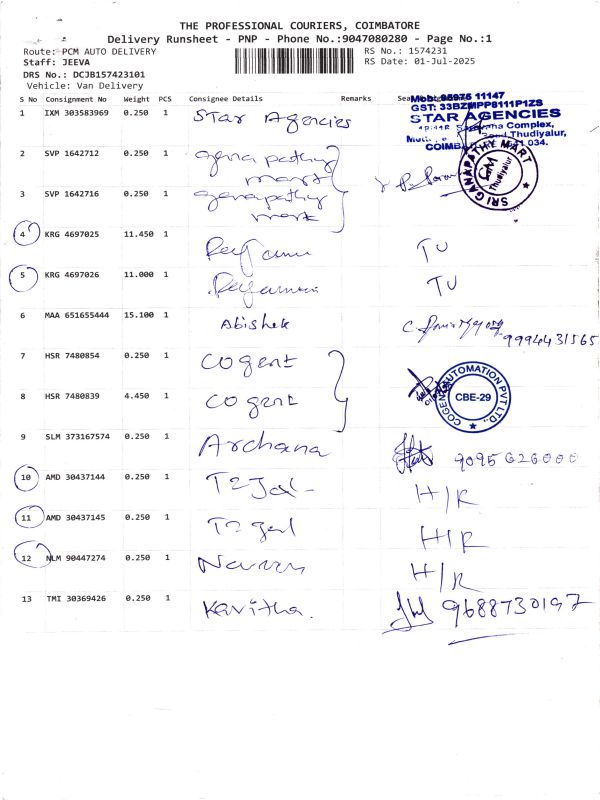 THE PROFESSIONAL COURIERS, COIMBATORE
Delivery Runsheet - PNP - Phone No.:9047080280 - Page No.:1
Route: PCM AUTO DELIVERY RS No.: 1574231
Staff: JEEVA RS Date: 01-Jul-2025
DRS No.: DCJB157423101
Vehicle: Van Delivery
S No Consignment No Weight PCS Consignee Details Remarks
Mob: 95975 11147
GST: 33BZMPP8111P1ZS
STAR AGENCIES
Complex,
Thudiyalur,
1 IXM 303583969 0.250 1 Star Agencies
2 SVP 1642712 0.250 1 gana pathy mart
SRI GANAPATHY MART
GM
Thudiyalur
3 SVP 1642716 0.250 1 ganapathy mart
4 KRG 4697025 11.450 1 TU
5 KRG 4697026 11.000 1 TU
6 MAA 651655444 15.100 1 Abishek 9994431565
7 HSR 7480854 0.250 1 cogent
COGENT AUTOMATION PVT LTD.,
CBE-29
8 HSR 7480839 4.450 1 cogent
9 SLM 373167574 0.250 1 Archana 9095626000
10 AMD 30437144 0.250 1 H/R
11 AMD 30437145 0.250 1 H/R
12 NLM 90447274 0.250 1 H/R
13 TMI 30369426 0.250 1 Kavitha. 9688730197